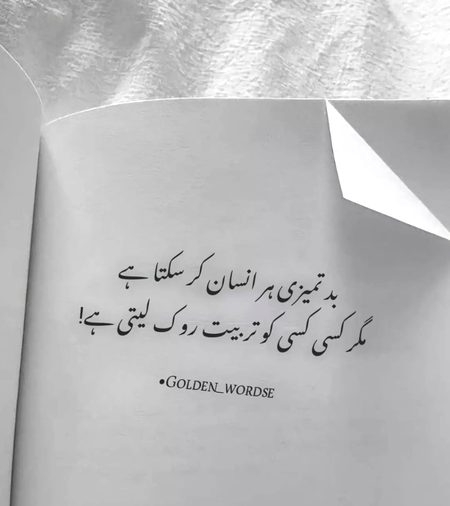 بدتمیزی ہر انسان کر سکتا ہے
مگر کسی کسی کو تربیت روک لیتی ہے!
•GOLDEN_WORDSE